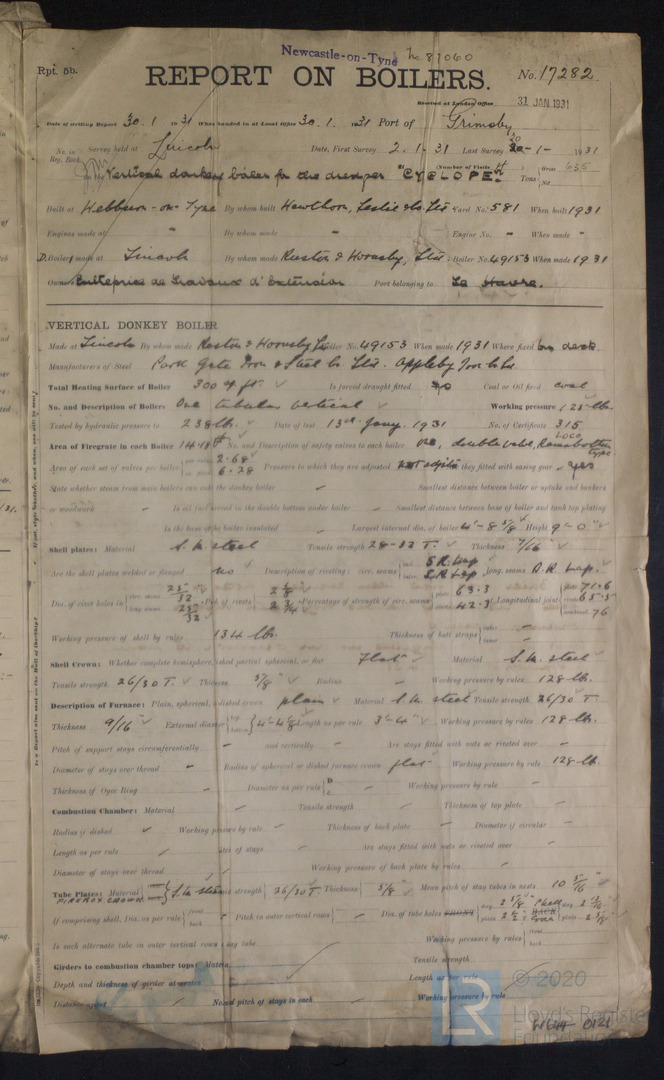 Newcastle-on-Tyne No 87060
Rpt. 5b.
REPORT ON BOILERS.
No. 17282
Received at London Office 31 JAN 1931
Date of writing Report 30.1.1931 When handed in at Local Office 30.1.1931 Port of Grimsby
No. in Reg. Book. Survey held at Lincoln Date, First Survey 2-1-31 Last Survey 30-1-1931
on the Vertical donkey boiler for the dredger "CYCLOPE" (Number of Visits Tons Gross 635 Net
Built at Hebburn-on-Tyne By whom built Hawthorn, Leslie & Co Ltd Yard No. 581 When built 1931
Engines made at " By whom made Engine No. - When made -
D. Boilers made at Lincoln By whom made Ruston & Hornsby, Ltd. Boiler No. 49153 When made 1931
Owners Entreprise de Travaux d'Extension Port belonging to Le Havre.
VERTICAL DONKEY BOILER
Made at Lincoln By whom made Ruston & Hornsby Ld Boiler No. 49153 When made 1931 Where fixed on deck
Manufacturers of Steel Park Gate Iron & Steel Co. Ltd. Appleby Iron Co Ld
Total Heating Surface of Boiler 300 sq ft. Is forced draught fitted no Coal or Oil fired coal
No. and Description of Boilers One tubular vertical Working pressure 125 lb.
Tested by hydraulic pressure to 238 lb. Date of test 13th Jany. 1931 No. of Certificate 315
Area of Firegrate in each Boiler No. and Description of safety valves to each boiler one, double valve, Ramsbottom type LOCO
Area of each set of valves per boiler 2.68 6.28 Pressure to which they are adjusted Are they fitted with easing gear yes
State whether steam from main boilers can enter the donkey boiler - Smallest distance between boiler or uptake and bunkers
or woodwork - Is oil fuel carried in the double bottom under boiler - Smallest distance between base of boiler and tank top plating
Is the base of the boiler insulated - Largest internal dia. of boiler 4'-8 5/8" Height 9'-0"
Shell plates: Material S.M. steel Tensile strength 28-32 T. Thickness 7/16"
Are the shell plates welded or flanged no Description of riveting: circ. seams S.R. Lap S.R. Lap long. seams D.R. Lap.
Dia. of rivet holes in circ. seams 25/32 long. seams 25/32 Pitch of rivets 2 1/8 2 3/4 Percentage of strength of circ. seams 63.3 42.3 of Longitudinal joint 71.6 65.5 76
Working pressure of shell by rules 134 lb. Thickness of butt straps -
Shell Crown: Whether complete hemisphere, dished partial spherical, or flat Flat Material S.M. steel
Tensile strength 26/30 T. Thickness 5/8" Radius - Working pressure by rules 128 lb.
Description of Furnace: Plain, spherical, or dished crown plain Material S.M. steel Tensile strength 26/30 T.
Thickness 9/16" External diameter Length as per rule 3'-4" Working pressure by rules 128 lb.
Pitch of support stays circumferentially - and vertically - Are stays fitted with nuts or riveted over -
Diameter of stays over thread - Radius of spherical or dished furnace crown flat Working pressure by rule 128 lb.
Thickness of Ogee Ring - Diameter as per rule D C - Working pressure by rule -
Combustion Chamber: Material - Tensile strength - Thickness of top plate -
Radius if dished Working pressure by rule Thickness of back plate Diameter if circular -
Length as per rule Pitch of stays Are stays fitted with nuts or riveted over -
Diameter of stays over thread Working pressure of back plate by rules
Tube Plates: Material S.M. steel Tensile strength 26/30 T. Thickness 5/8" Mean pitch of stay tubes in nests 10 5/16
FIREBOX CROWN
If comprising shell, Dia. as per rule front back Pitch in outer vertical rows Dia. of tube holes FRONT stay 2 5/8" plain BACK stay plain
Is each alternate tube in outer vertical rows a stay tube Working pressure by rules front back
Girders to combustion chamber tops: Material Tensile strength
Depth and thickness of girder at centre Length as per rule
Distance apart No. and pitch of stays in each Working pressure by rule
© 2020
LR
Lloyd's Register
Foundation
W644-0121